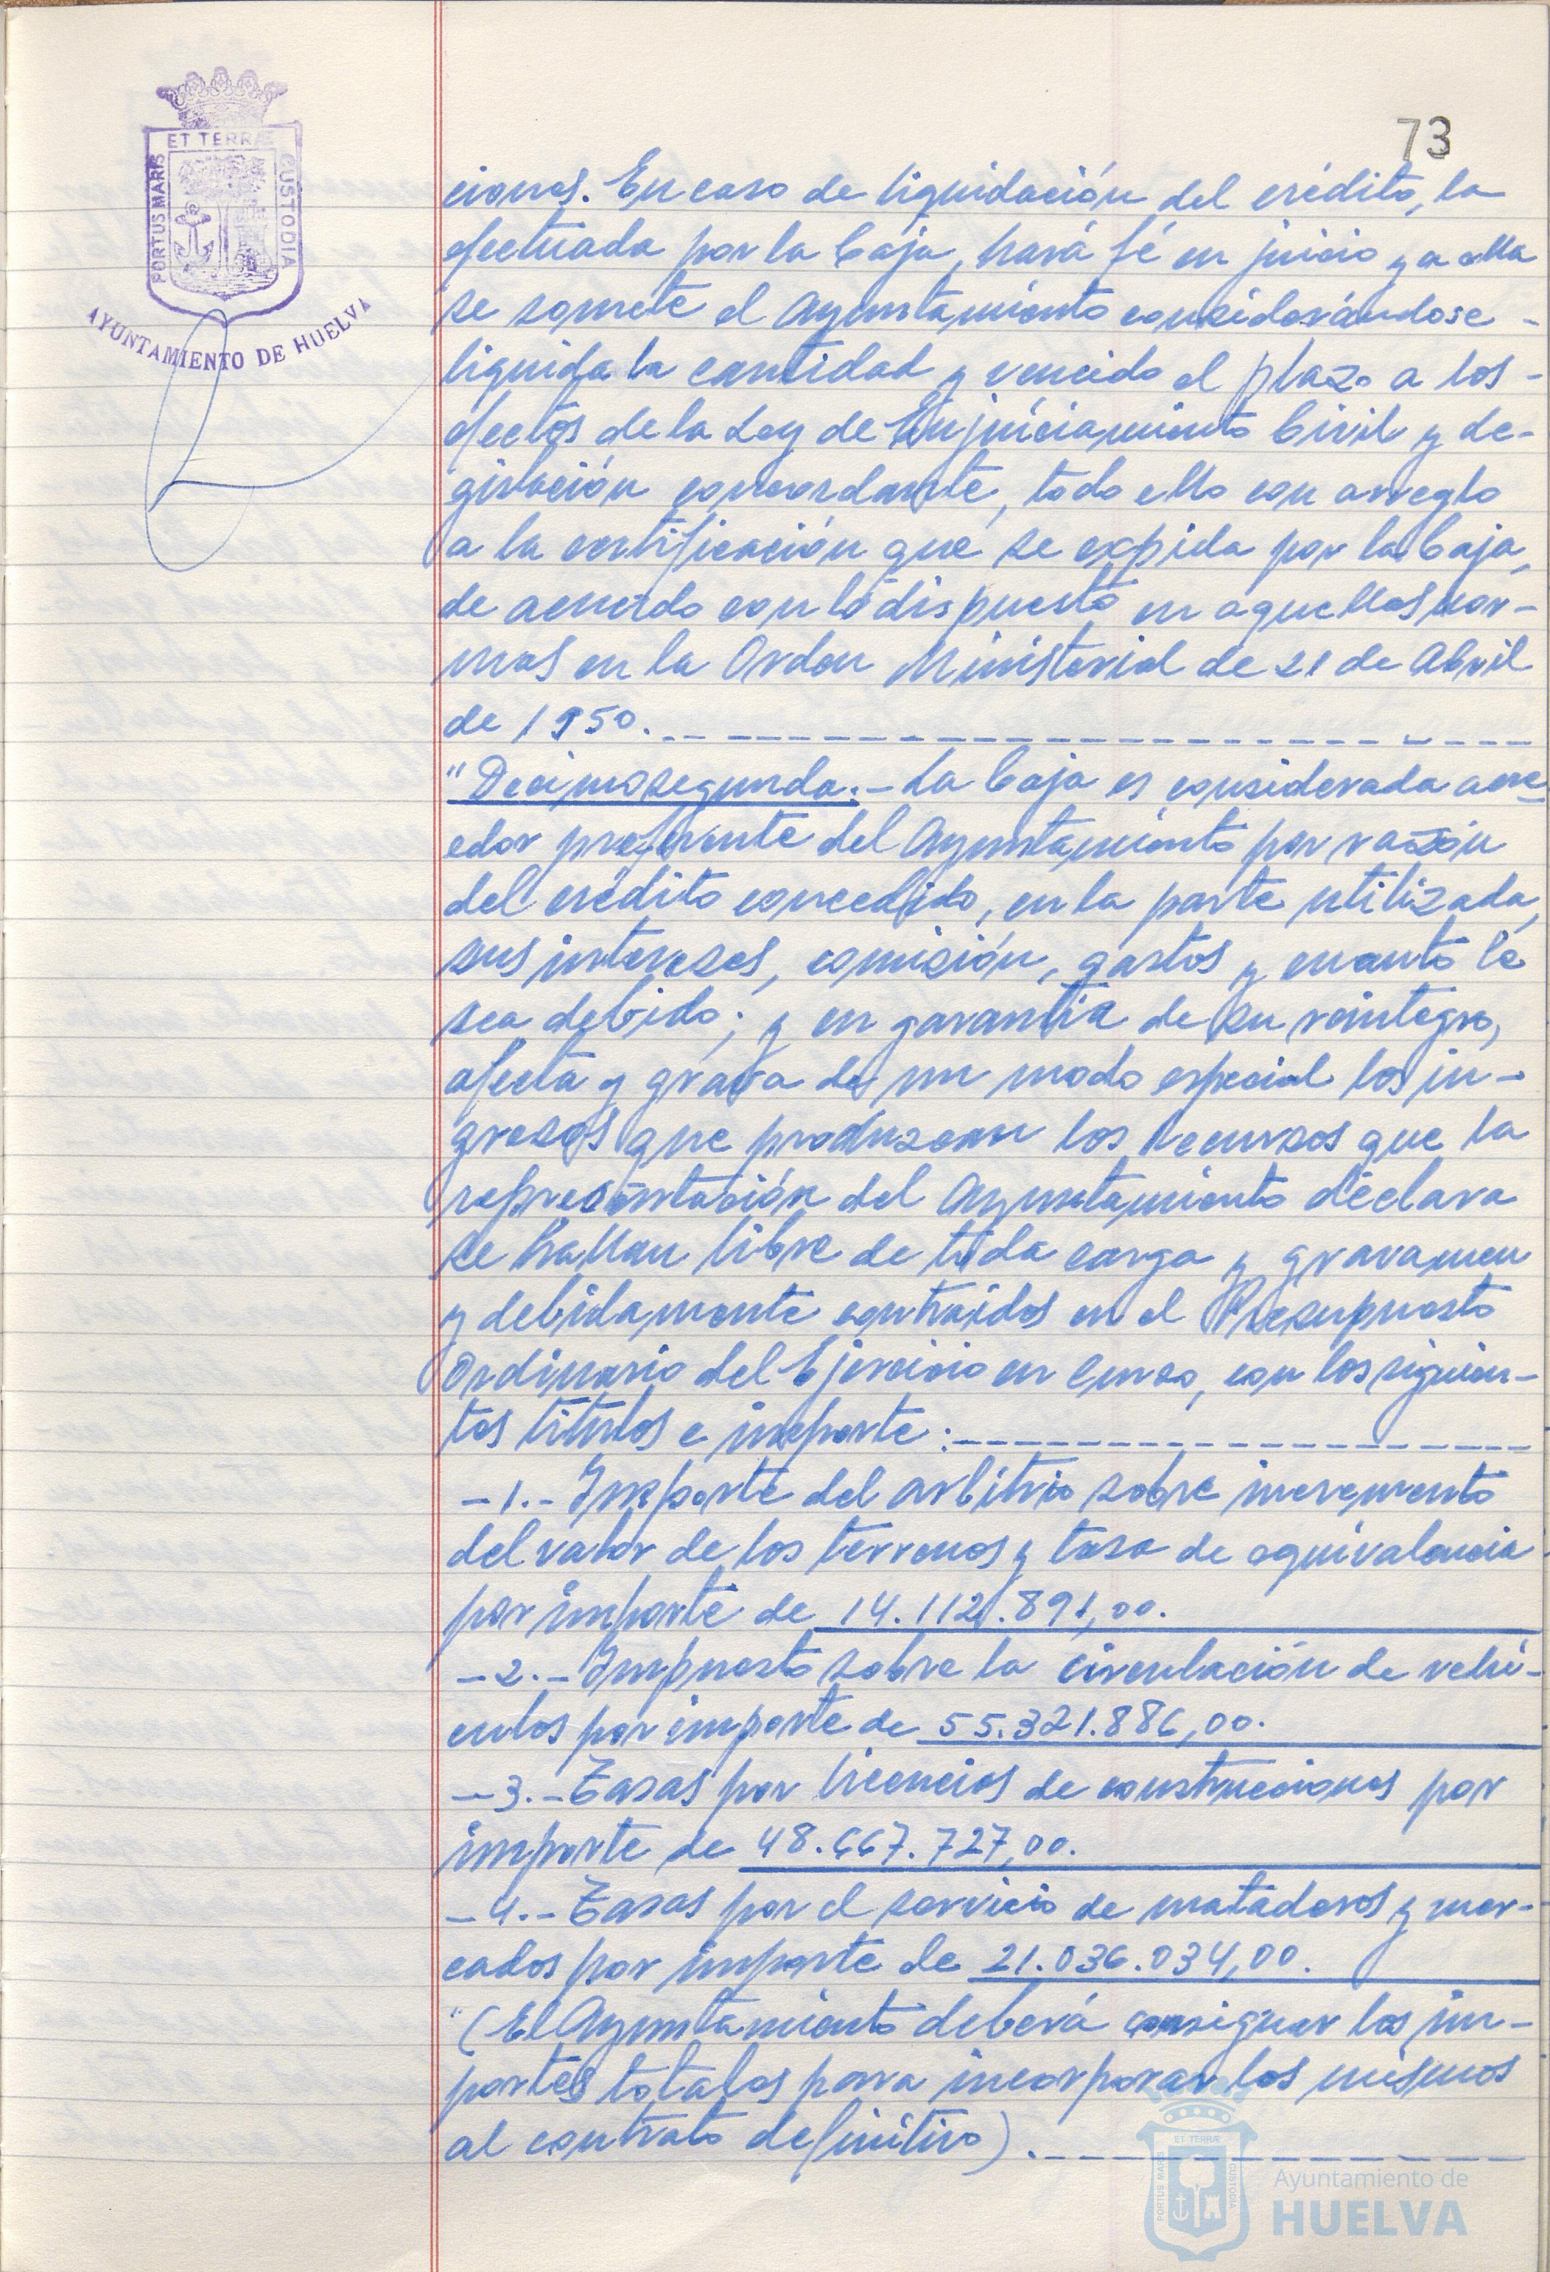 73
ET TERRÆ
PORTUS MARIS
CUSTODIA
AYUNTAMIENTO DE HUELVA
ciones. En caso de liquidación del crédito, la
efectuada por la Caja, hará fé en juicio y a ella
se somete el Ayuntamiento considerándose -
liquida la cantidad y vencido el plazo a los -
efectos de la Ley de Enjuiciamiento Civil y de-
gislación concordante, todo ello con arreglo
a la certificación que se expida por la Caja,
de acuerdo con lo dispuesto en aquellas nor-
mas en la Orden Ministerial de 21 de Abril
de 1950.
"Decimosegunda:- La Caja es considerada acre-
edor preferente del Ayuntamiento por razón
del crédito concedido, en la parte utilizada,
sus intereses, comisión, gastos y cuanto le
sea debido; y en garantía de su reintegro,
afecta y grava de un modo especial los in-
gresos que produzcan los recursos que la
representación del Ayuntamiento declara
se hallan libre de toda carga y gravamen
y debidamente contraidos en el Presupuesto
Ordinario del Ejercicio en curso, con los siguien-
tes títulos e importe:
-1.- Importe del arbitrio sobre incremento
del valor de los terrenos y tasa de equivalencia
por importe de 14.112.891,00.
-2.- Impuesto sobre la circulación de vehí-
culos por importe de 55.321.886,00.
-3.- Tasas por licencias de construcciones por
importe de 48.667.727,00.
-4.- Tasas por el servicio de mataderos y mer-
cados por importe de 21.036.034,00.
"(El Ayuntamiento deberá consignar los im-
portes totales para incorporar los mismos
al contrato definitivo).
ET TERRÆ
PORTUS MARIS
CUSTODIA
Ayuntamiento de
HUELVA